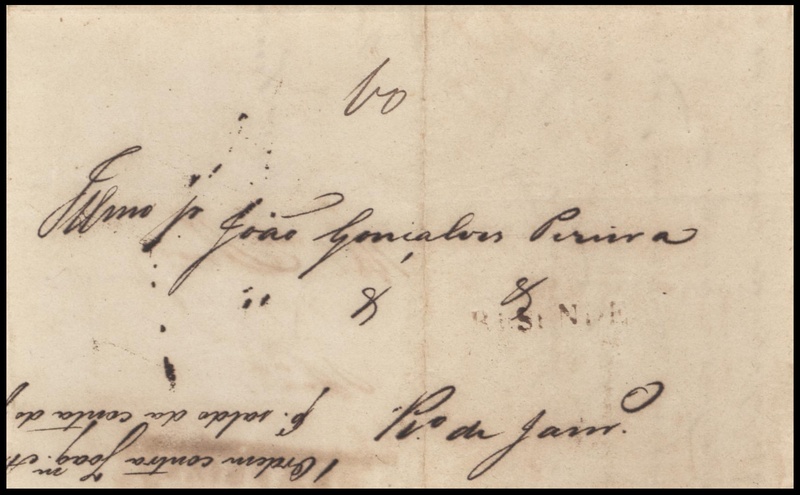 60
Illmo Sr João Gonçalves Pereira
" & &
RESENDE
Rio de Janro.
1 Ordem contra Joaqm. A
pr. saldo da conta do